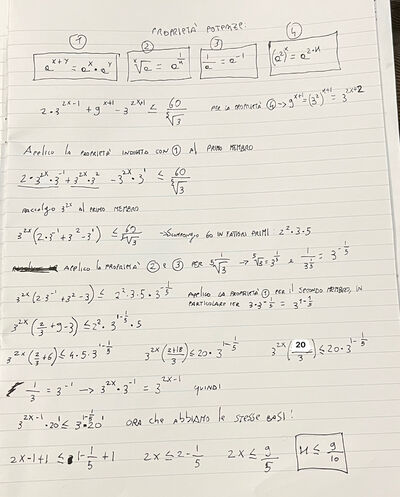 PROPRIETÀ POTENZE:
① ② ③ ④
a^{x+y} = a^x · a^y   \sqrt[x]{a} = a^{1/x}   1/a = a^{-1}   (a^2)^x = a^{2·x}
2·3^{2x-1} + 9^{x+1} - 3^{2x+1} ≤ 60/\sqrt[5]{3}   PER LA PROPRIETÀ ④ → 9^{x+1} = (3^2)^{x+1} = 3^{2x+2}
APPLICO LA PROPRIETÀ INDICATA CON ① AL PRIMO MEMBRO
2·3^{2x}·3^{-1} + 3^{2x}·3^2 - 3^{2x}·3^1 ≤ 60/\sqrt[5]{3}
RACCOLGO 3^{2x} AL PRIMO MEMBRO
3^{2x}(2·3^{-1} + 3^2 - 3^1) ≤ 60/\sqrt[5]{3} → SCOMPONGO 60 IN FATTORI PRIMI: 2^2·3·5
APPLICO LA PROPRIETÀ ② E ③ PER 1/\sqrt[5]{3} → \sqrt[5]{3} = 3^{1/5} E 1/3^{1/5} = 3^{-1/5}
3^{2x}(2·3^{-1} + 3^2 - 3) ≤ 2^2·3·5·3^{-1/5}   APPLICO LA PROPRIETÀ ① PER IL SECONDO MEMBRO, IN
PARTICOLARE PER 3·3^{-1/5} = 3^{1-1/5}
3^{2x}(2/3 + 9 - 3) ≤ 2^2·3^{1-1/5}·5
3^{2x}(2/3 + 6) ≤ 4·5·3^{1-1/5}   3^{2x}((2+18)/3) ≤ 20·3^{1-1/5}   3^{2x}(20/3) ≤ 20·3^{1-1/5}
1/3 = 3^{-1} → 3^{2x}·3^{-1} = 3^{2x-1} QUINDI
3^{2x-1}·20 ≤ 3^{1-1/5}·20   ORA CHE ABBIAMO LE STESSE BASI:
2x-1+1 ≤ 1-1/5+1   2x ≤ 2-1/5   2x ≤ 9/5   x ≤ 9/10